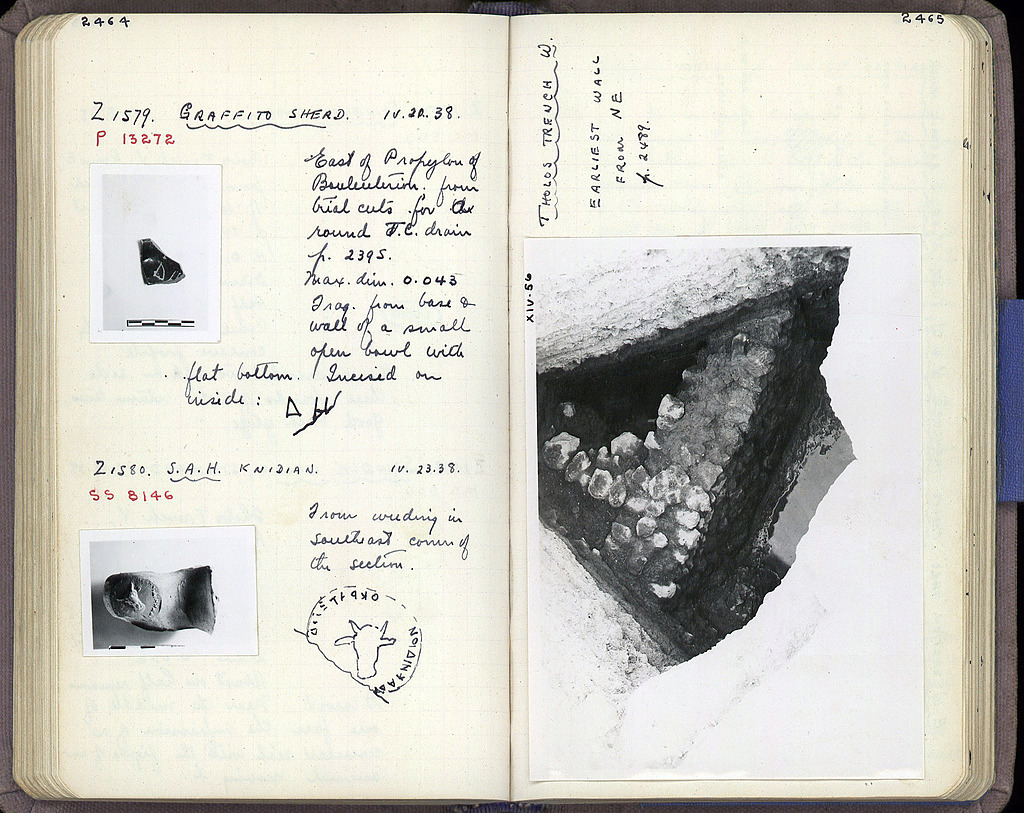 2464
Z 1579. GRAFFITO SHERD. IV.20.38.
P 13272
East of Propylon of
Bouleuterion, from
trial cuts for the
round T.C. drain
p. 2395.
Max. dim. 0.045
Frag. from base &
wall of a small
open bowl with
flat bottom. Incised on
inside:
Z 1580. S.A.H. KNIDIAN. IV. 23.38.
SS 8146
From weeding in
southeast corner of
the section.
ΚΝΙΔΙΟΝ
2465
THOLOS TRENCH W.
EARLIEST WALL
FROM NE
p. 2489.
XIV-56